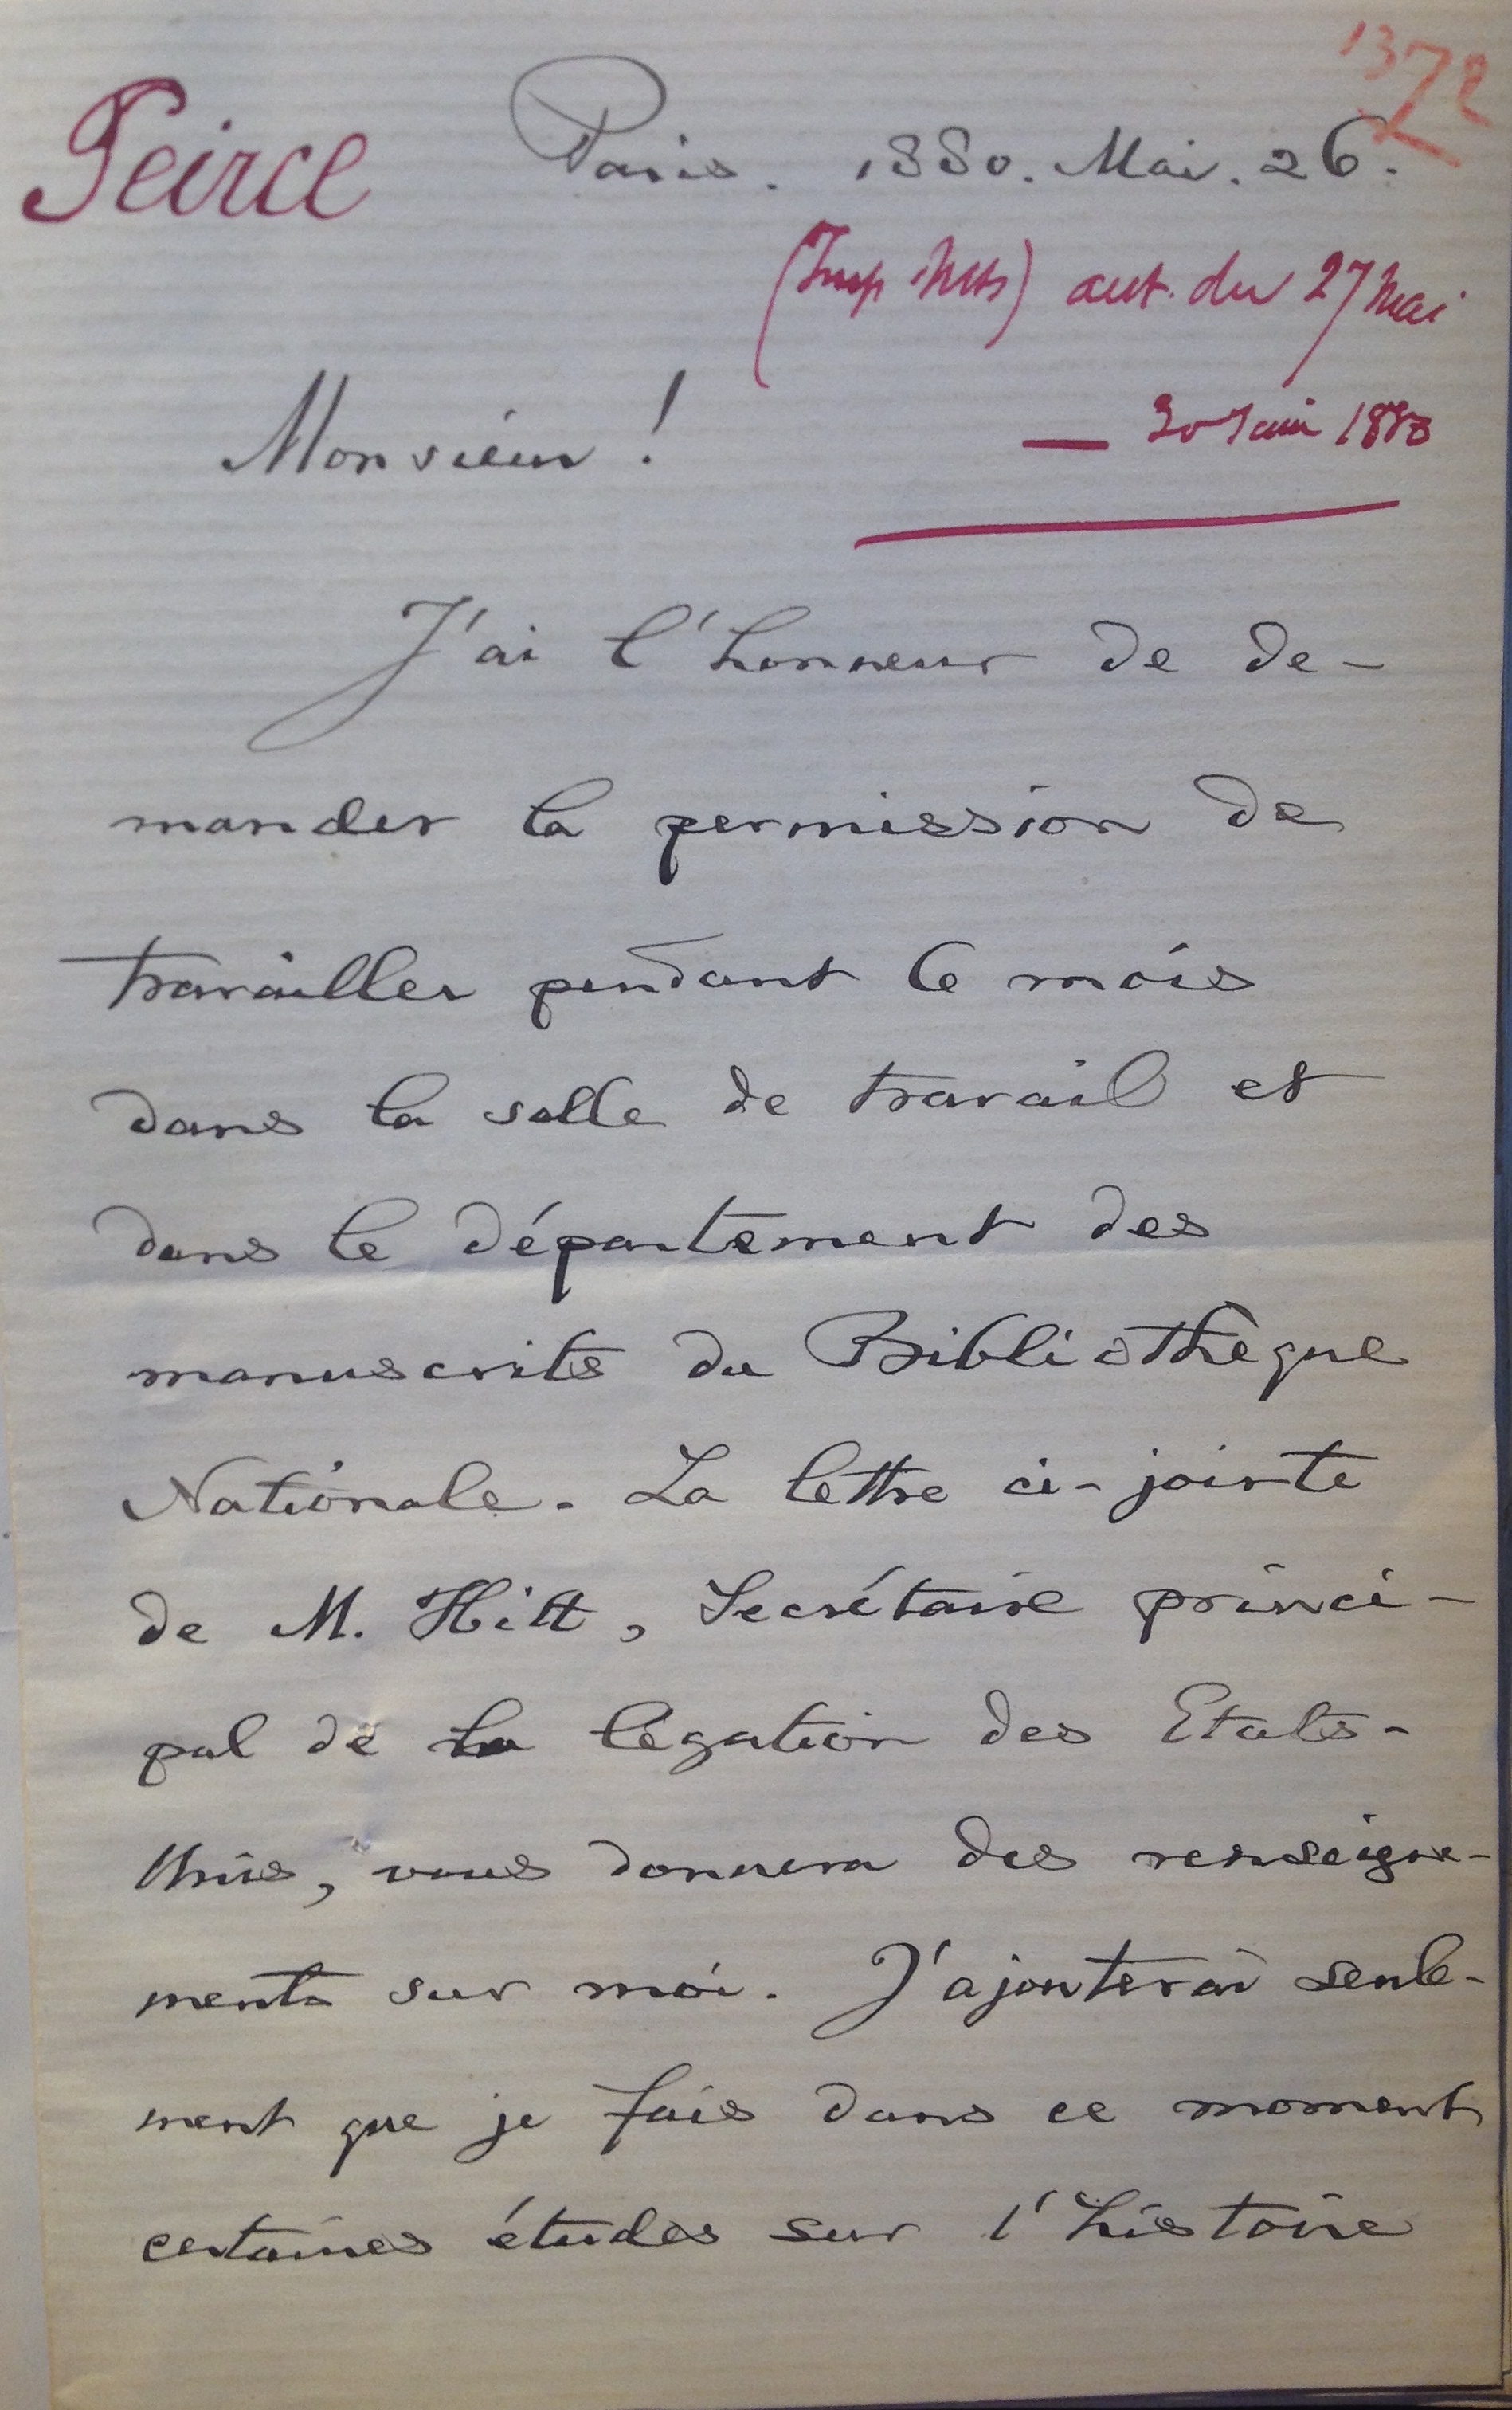 1372
Peirce Paris. 1880. Mai. 26.
(Imp Mts) aut. du 27 Mai
— 30 Juin 1880
Monsieur!
J'ai l'honneur de de-
mander la permission de
travailler pendant le mois
dans la salle de travail et
dans le département des
manuscrits du Bibliothèque
Nationale. La lettre ci-jointe
de M. Hitt, Secrétaire princi-
pal de la légation des Etats-
Unis, vous donnera des renseigne-
ments sur moi. J'ajouterai seule-
ment que je fais dans ce moment
certaines études sur l'histoire